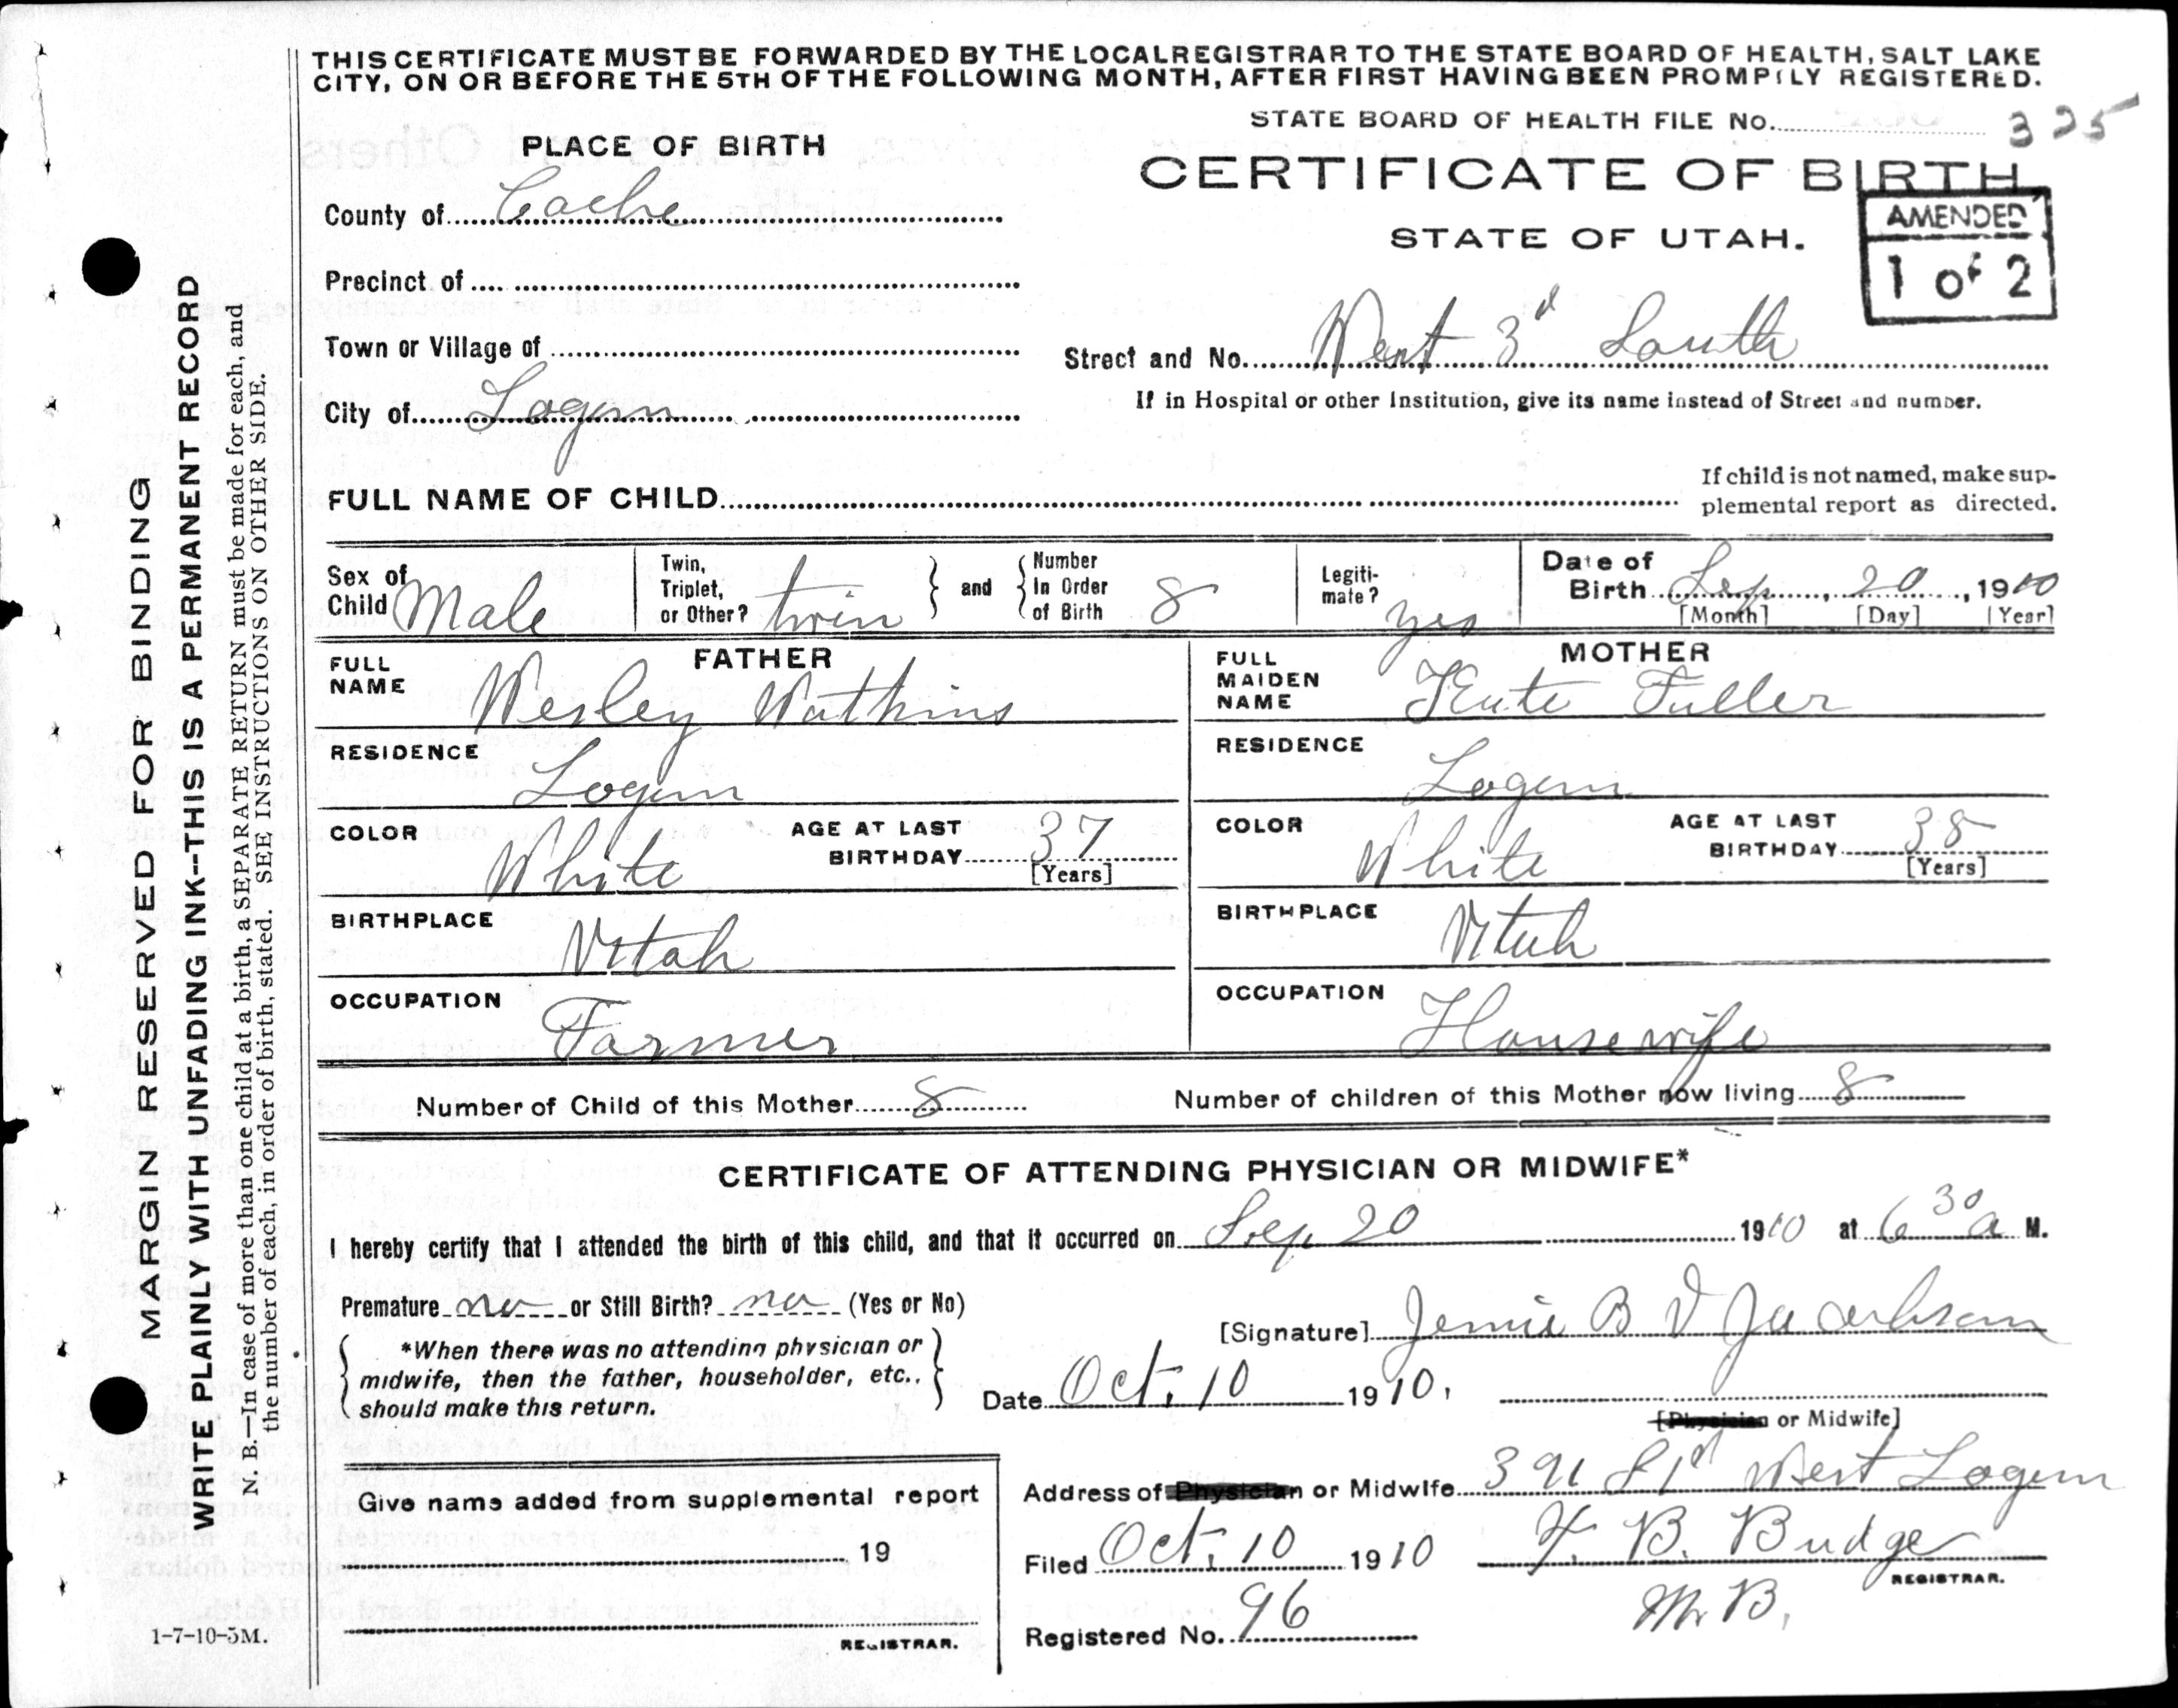 THIS CERTIFICATE MUST BE FORWARDED BY THE LOCAL REGISTRAR TO THE STATE BOARD OF HEALTH, SALT LAKE
CITY, ON OR BEFORE THE 5TH OF THE FOLLOWING MONTH, AFTER FIRST HAVING BEEN PROMPTLY REGISTERED.
STATE BOARD OF HEALTH FILE No. 325
PLACE OF BIRTH
CERTIFICATE OF BIRTH
STATE OF UTAH.
AMENDED
1 of 2
County of Cache
Precinct of
Town or Village of
City of Logan
Street and No. West 3d South
If in Hospital or other Institution, give its name instead of Street and number.
FULL NAME OF CHILD
If child is not named, make sup-
plemental report as directed.
Sex of Child Male
Twin, Triplet, or Other? twin
and
Number In Order of Birth 8
Legiti-mate? yes
Date of Birth Sep, 20, 1910
[Month] [Day] [Year]
FATHER
FULL NAME Wesley Watkins
RESIDENCE Logan
COLOR White
AGE AT LAST BIRTHDAY 37
[Years]
BIRTHPLACE Utah
OCCUPATION Farmer
MOTHER
FULL MAIDEN NAME Fuller
RESIDENCE Logan
COLOR White
AGE AT LAST BIRTHDAY 38
[Years]
BIRTHPLACE Utah
OCCUPATION Housewife
Number of Child of this Mother 8
Number of children of this Mother now living 8
CERTIFICATE OF ATTENDING PHYSICIAN OR MIDWIFE*
I hereby certify that I attended the birth of this child, and that it occurred on Sep 20 1910 at 6 30 a M.
Premature no or Still Birth? no (Yes or No)
*When there was no attending physician or
midwife, then the father, householder, etc.,
should make this return.
[Signature] Jennie B Jacobson
Date Oct. 10 1910,
[Physician or Midwife]
Address of Physician or Midwife West Logan
Give name added from supplemental report
19
REGISTRAR.
Filed Oct. 10 1910
B. Budge
REGISTRAR.
M. B.
Registered No. 96
MARGIN RESERVED FOR BINDING
WRITE PLAINLY WITH UNFADING INK--THIS IS A PERMANENT RECORD
N. B.—In case of more than one child at a birth, a SEPARATE RETURN must be made for each, and
the number of each, in order of birth, stated. SEE INSTRUCTIONS ON OTHER SIDE.
1-7-10-5M.